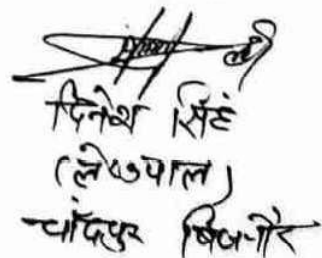 दिनेश सिंह
(लेखपाल)
चाँदपुर बिजनौर